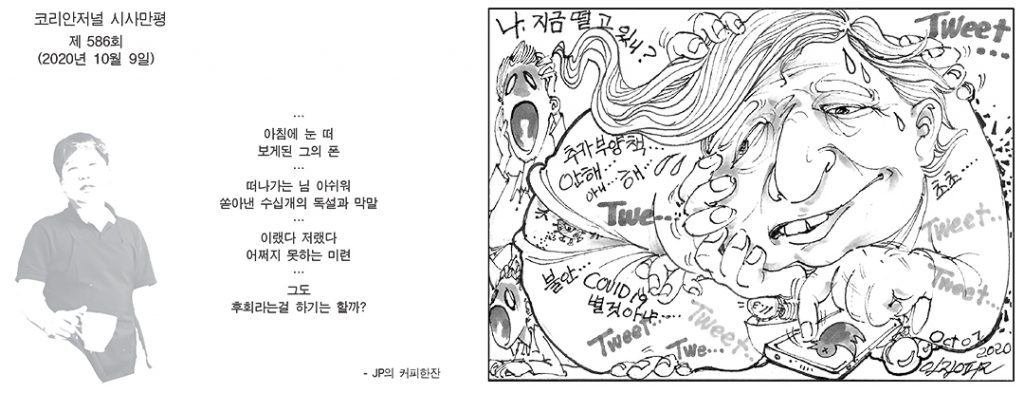 코리안저널 시사만평
제 586회
(2020년 10월 9일)
...
아침에 눈 떠
보게된 그의 폰
...
떠나가는 님 아쉬워
쏟아낸 수십개의 독설과 막말
...
이랬다 저랬다
어쩌지 못하는 미련
...
그도
후회라는걸 하기는 할까?
- JP의 커피한잔
나, 지금 떨고 있니?
Tweet...
추가부양책...
안해...
아니...해...
Twe...
초초...
Tweet...
Tweet...
불안...
COVID19
별것아냐...
Tweet...
Tweet...
Twe...
Oct 07
2020